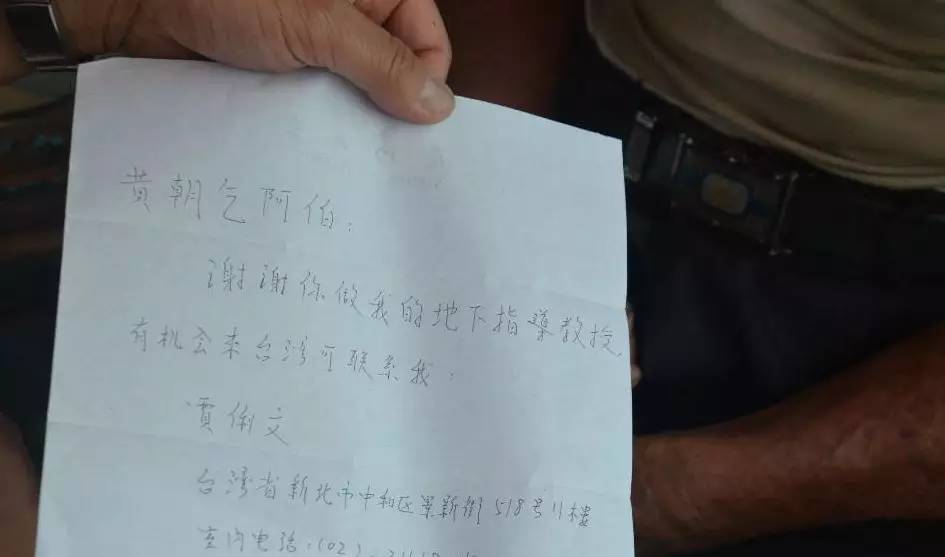 黄朝乞阿伯:
谢谢你做我的地下指導教授,
有机会来台湾可联系我:
賈俐文
台湾省新北市中和区景新街518号11楼
室内电话:(02)